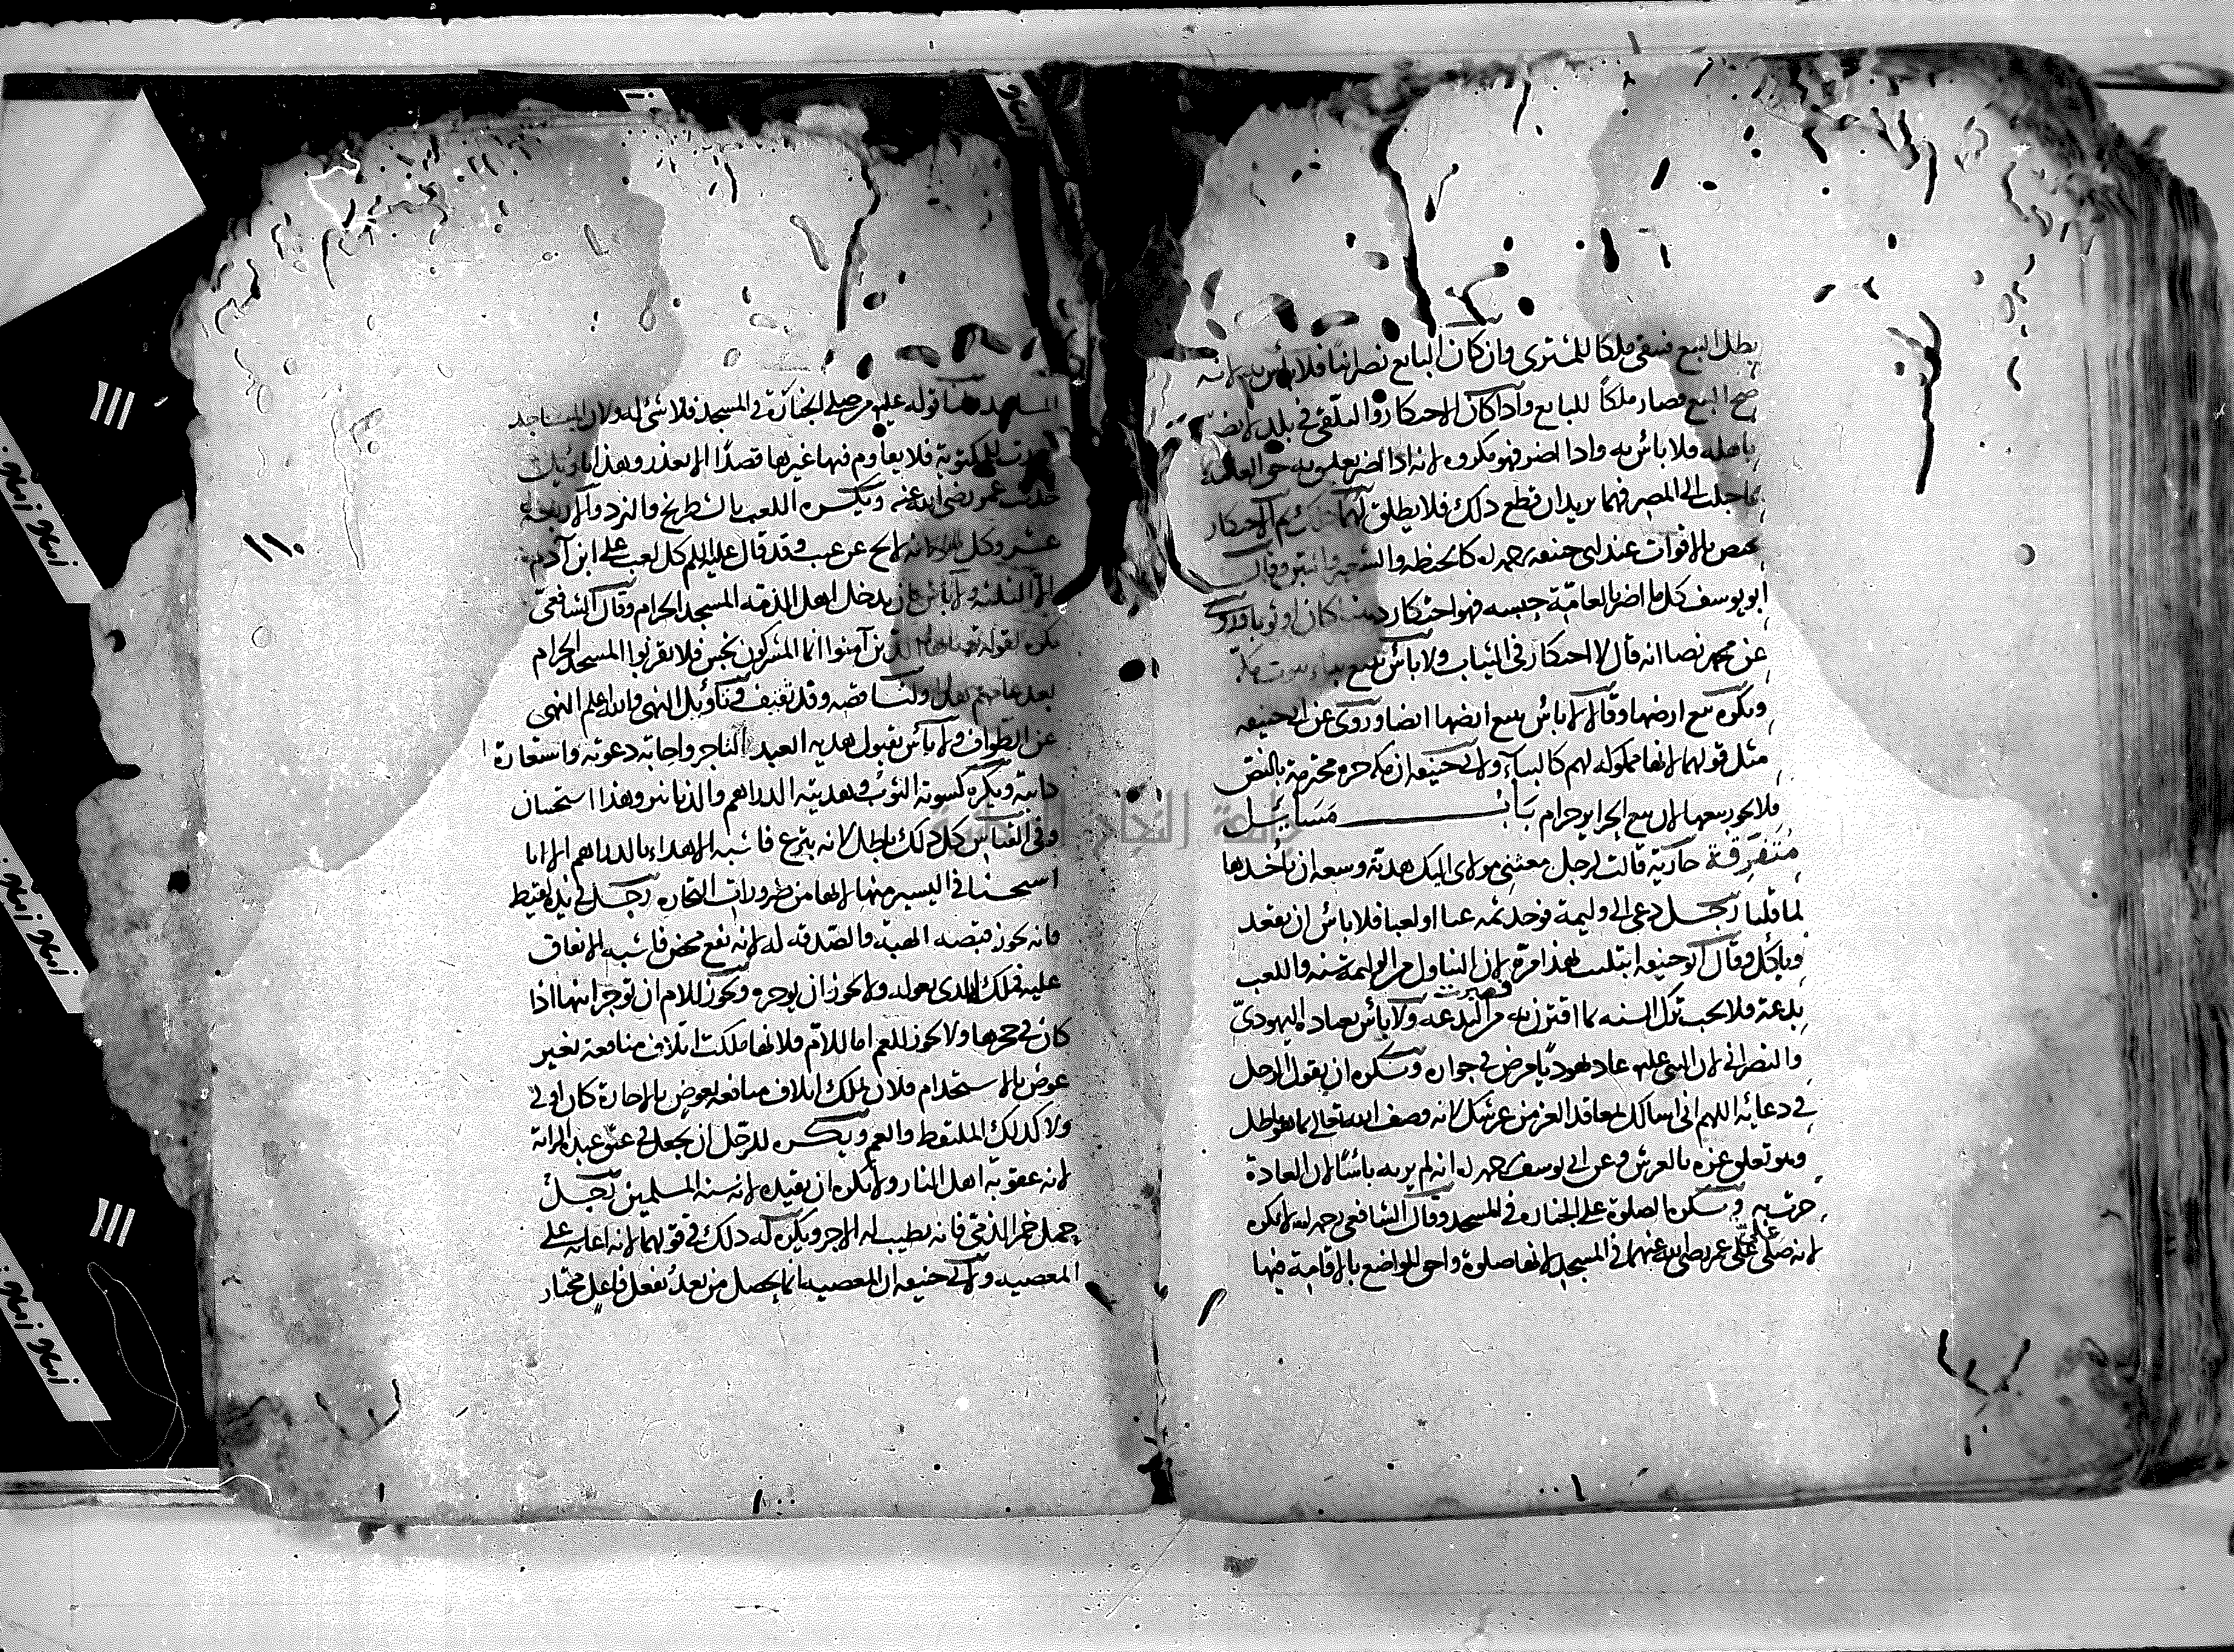 بطل البيع فبقي ملكا للمشتري وان كان البايع نصرانيا فلا بأس به لانه
صح البيع فصار ملكا للبايع واذا كان الاحتكار والتلقي في بلد لا يضر
باهله فلا بأس به واذا اضر فهو مكروه لانه اذا اضر تعلق به حق العامة
المصر فهما يريدان قطع ذلك فلا يطلق لهما ذلك ثم الاحتكار
يختص بالاقوات عند ابي حنيفة رحمه الله كالحنطة والشعير والتبن وقال
ابو يوسف كل ما اضر بالعامة حبسه فهو احتكار كان او ثوبا
عن محمد نصا انه قال لا احتكار في الثياب ولا بأس ببيع بناء بيوت مكة
ويكره بيع ارضها وقالا لا بأس ببيع ارضها ايضا وروي عن ابي حنيفة
مثل قولهما لانها مملوكة لهم كالبناء ولابي حنيفة ان مكة حرم محترمة بالنص
فلا يجوز بيعها لان بيع الحرام حرام باب مسائل
متفرقة جارية قالت لرجل بعثني مولاي اليك هدية وسعه ان يأخذها
لما قلنا رجل دعي الى وليمة فوجد ثمه غنا او لعبا فلا بأس ان يقعد
ويأكل وقال ابو حنيفة ابتليت بهذا مرة فصبرت لان التناول من الوليمة سنة واللعب
بدعة فلا يجب ترك السنة بما اقترن به من البدعة ولا بأس بعيادة اليهودي
والنصراني لان النبي عليه عاد يهوديا مرض في جواره ويكره ان يقول الرجل
في دعائه اللهم اني اسالك بمعاقد العز من عرشك لانه وصف الله تعالى بما هو باطل
وهو تعلق عزه بالعرش وعن ابي يوسف رحمه الله انه لم ير به بأسا لان العادة
جرت به ويكره الصلوة على الجنازة في المسجد وقال الشافعي رحمه الله لا يكره
لانه صلى علي على عمر رضي الله عنهما في المسجد لانها صلوة واحق المواضع بالاقامة فيها
المساجد ولنا قوله عليه من صلى الجنازة في المسجد فلا شئ له ولان المساجد
للمكتوبة فلا يقاوم فيها غيرها قصدا الا بعذر وهذا تاويل
حديث عمر رضي الله عنه ويكره اللعب بالشطرنج والنرد والاربعة
عشر وكل لهو لانه لا يخ عن عبث وقد قال عليه السلم كل لعب على ابن آدم
الا الثلثة ولا بأس بان يدخل اهل الذمة المسجد الحرام وقال الشافعي
يكره لقوله تعالى يا ايها الذين آمنوا انما المشركون نجس فلا يقربوا المسجد الحرام
بعد عامهم هذا ولنا وقد ثقيف في تأويل النهي والله اعلم النهي
عن الطواف ولا بأس بقبول هدية العبد التاجر واجابة دعوته واستعارة
دابته ويكره كسوته الثوب وهديته الدراهم والدنانير وهذا استحسان
وفي القياس كل ذلك باطل لانه تبرع فاشبه الاهداء بالدراهم الا انا
استحسنا في اليسير منها لانها من ضرورات التجارة رجل في يده لقيط
فانه يجوز قبضه الهبة والصدقة له لانه نفع محض فاشبه الانفاق
عليه فملك الذي يعوله ولا يجوز ان يوجره ويجوز للام ان توجر ابنها اذا
كان في حجرها ولا يجوز للعم اما للام فلانها ملكت اتلاف منافعه بغير
عوض بالاستخدام فلان تملك اتلاف منافعه بعوض بالاجارة كان اولى
ولا كذلك الملتقط والعم ويكره للرجل ان يجعل في عنق عبده الراية
لانه عقوبة اهل النار ولا يكره ان يقيده لانه سنة المسلمين رجل
حمل خمر الذمي فانه يطيب له الاجر ويكره له ذلك في قولهما لانه اعانه على
المعصية ولابي حنيفة ان المعصية انما يحصل من بعد بفعل فاعل مختار
١١٠